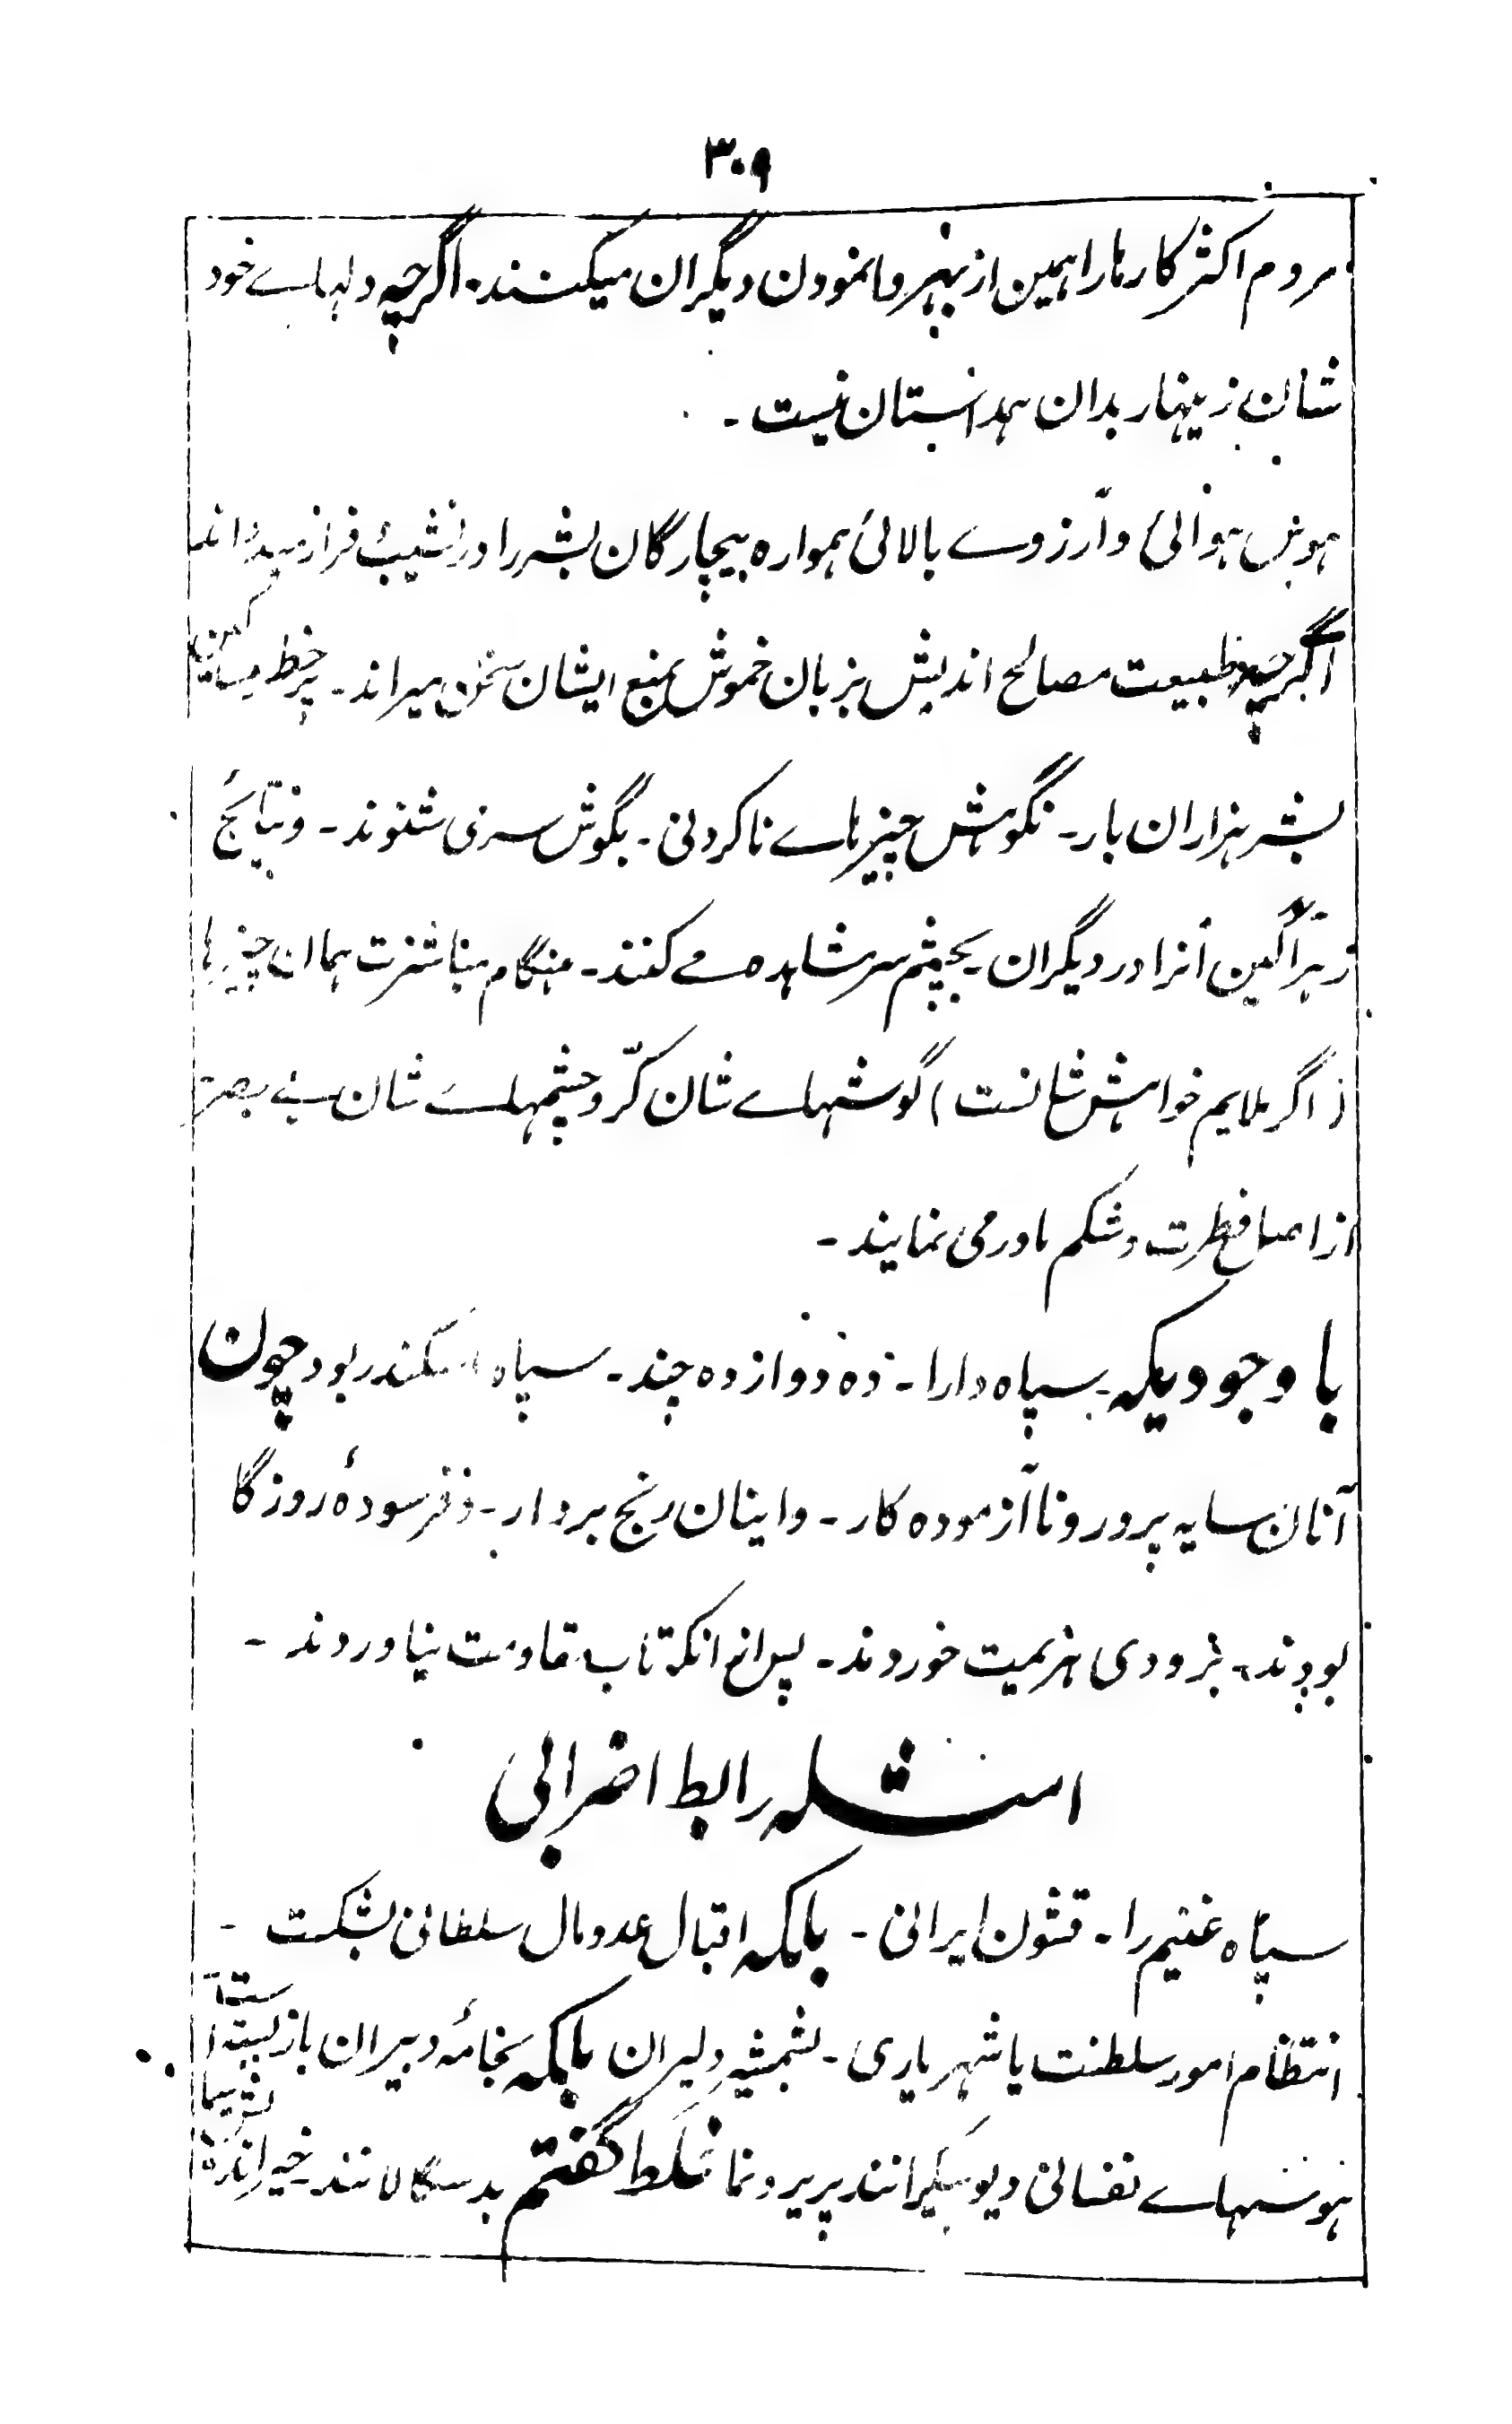 ۳۰۹
مردم اکثر کارها را همین از بهر وانمودن دیگران میکنند۔ اگرچه دلهاے خود
شان زینهار بدان همداستان نیست ۔
هوس هوائی و آرزوے بالائی همواره بیچارگان بشر را در نشیب فراز میدواند
اگرچه طبیعت مصالح اندیش بزبان خموش بمنع ایشان سخن میراند۔ پرخطر مسالکین
بشر هزاران بار۔ نگوهش چیزهاے ناکردنی۔ بگوش سر می شنوند۔ و نتایج
زهرآگین آنرا در دیگران بچشم سر مشاهده مے کنند۔ هنگام مباشرت همان چیزها
(اگر ملایم خواهش شانست) گوشهاے شان کرّ و چشمهاے شان بے بصر
از اصل فطرت و شکم مادر می نمایند ۔
با وجودیکه سپاه دارا۔ ده دوازده چند۔ سپاه اسکندر بود چون
آنان سایه پرور و ناآزموده کار۔ و اینان رنج بردار۔ و فرسودهٔ روزگا
بودند۔ بزودی هزیمت خوردند۔ پس از انکه تاب مقاومت نیاوردند ۔
امثله رابط اضرابی
سپاه غنیم را۔ قشون ایرانی ۔ بلکه اقبال عدومال سلطانی بشکست ۔
انتظام امور سلطنت یا شهریاری۔ بشمشیر دلیران بلکه بخامهٔ دبیران بازبسته است
هوسهاے نفسانی دیو پیکرانند پریرو نما غلط گفتم بدسگالانند خیراندیش سیما